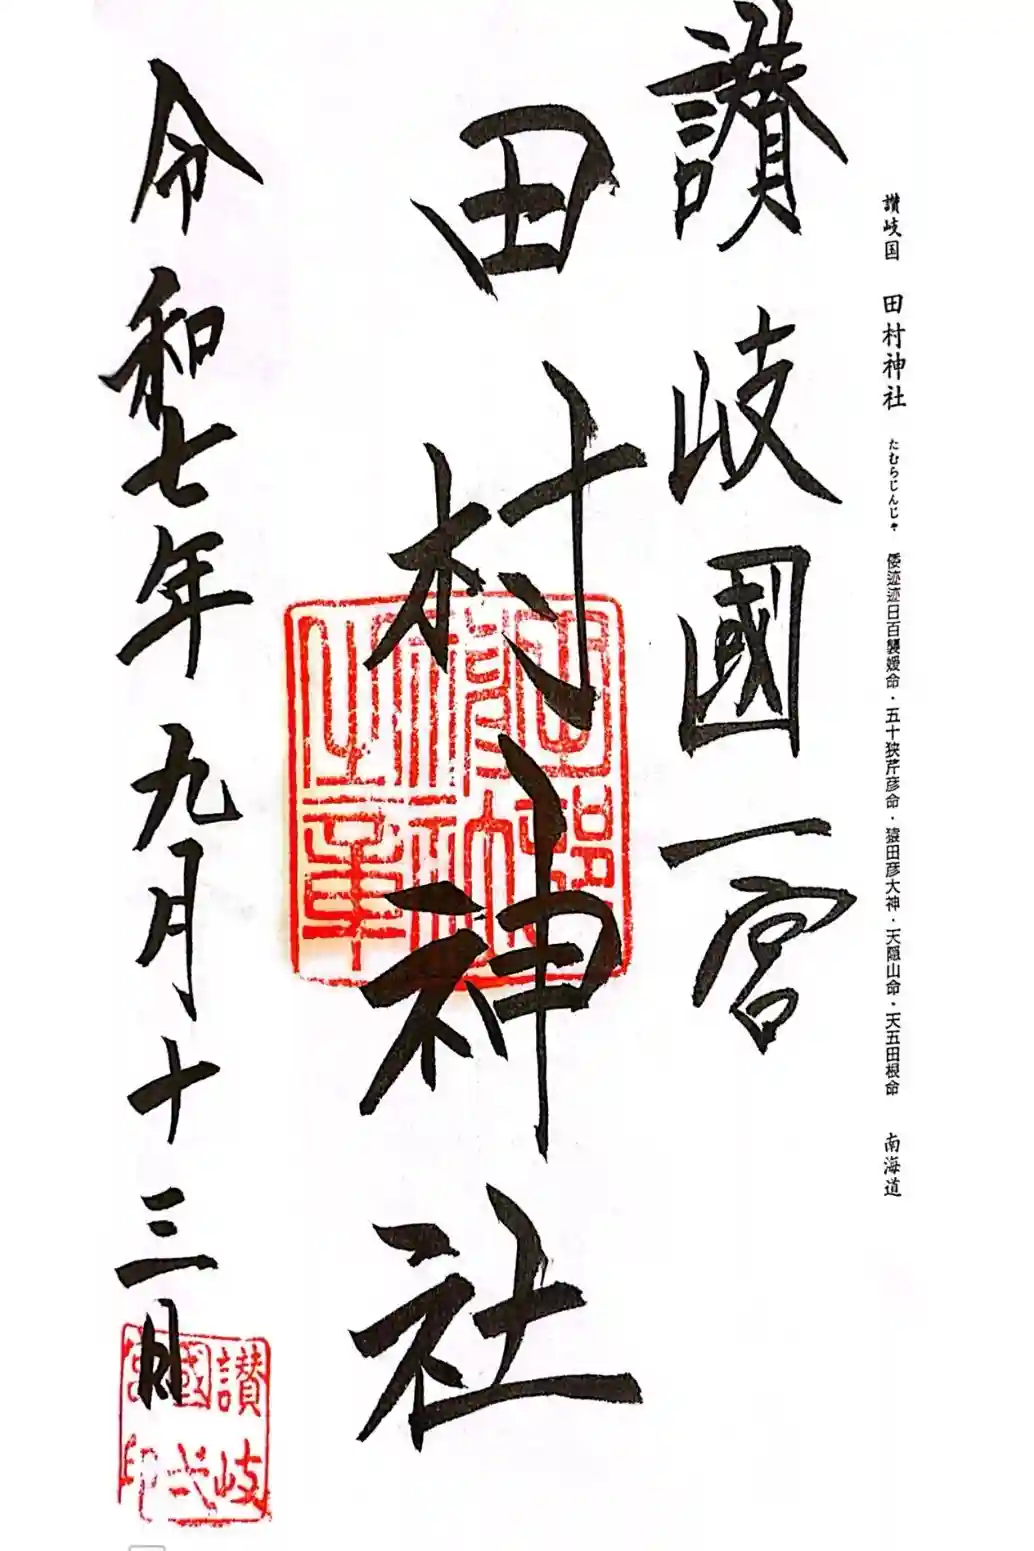 讃岐国 田村神社 たむらじんじゃ 倭迹迹日百襲媛命・五十狭芹彦命・猿田彦大神・天隠山命・天五田根命 南海道
讃岐國一宮
田村神社
令和七年九月十三日
田村神社之章
讃岐國弌宮印